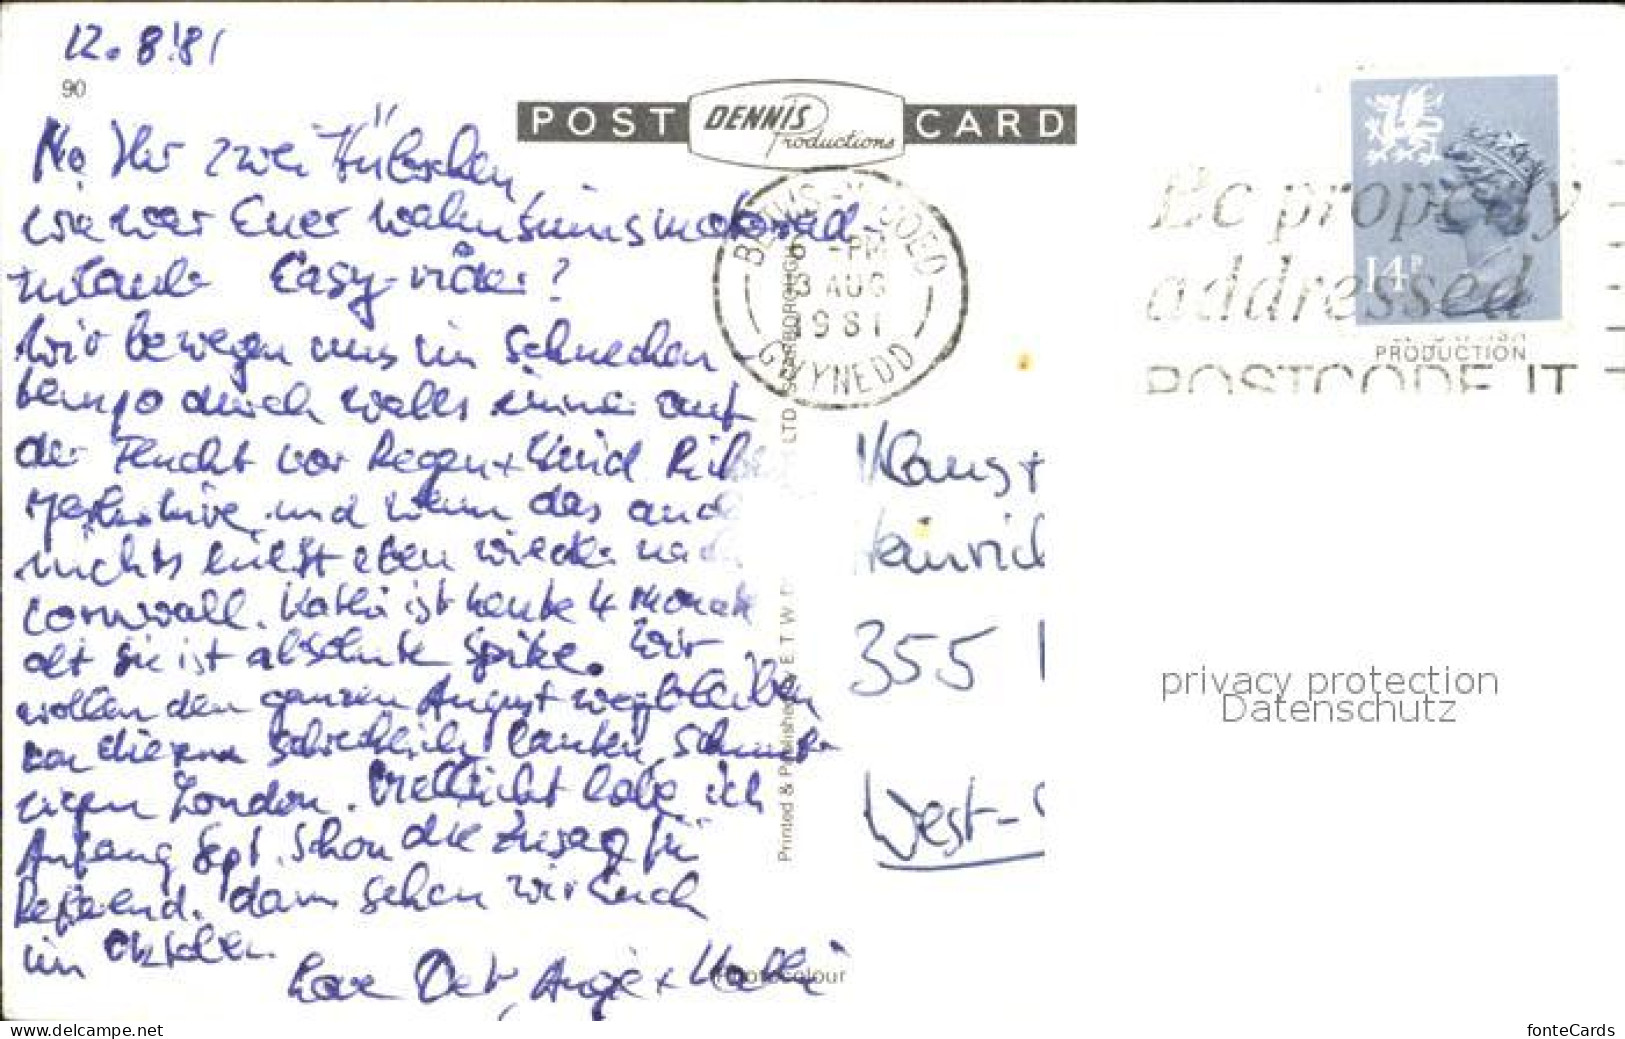 12.8.'81
90
POST DENNIS Productions CARD
Na Ihr zwei Hübschen,
wie war Euer wahnsinnsmotorrad-
urlaub Easy-rider?
Wir bewegen uns im Schnecken
tempo durch Wales immer auf
der Flucht vor Regen + Wind Rich
und wenn das and
nichts hilft eben wieder nach
Cornwall. Kathi ist heute 4 Monate
alt sie ist absolute Spitze. Wir
wollen den ganzen August wegbleiben
von diesem schrecklich lauten, schmut-
zigen London. Vielleicht habe ich
Anfang Sept. schon die Zusage für
dann sehen wir Euch
im Oktober.
Love Det, Angie + Kathi
Photocolour
Printed & Published E.T.W. LTD SCARBOROUGH
BETWS-Y-COED
6 -PM
3 AUG
1981
GWYNEDD
Be properly
addressed
POSTCODE IT
14P
PRODUCTION
Klaus +
Heinrich
355
West-
privacy protection
Datenschutz
www.delcampe.net
fonteCards